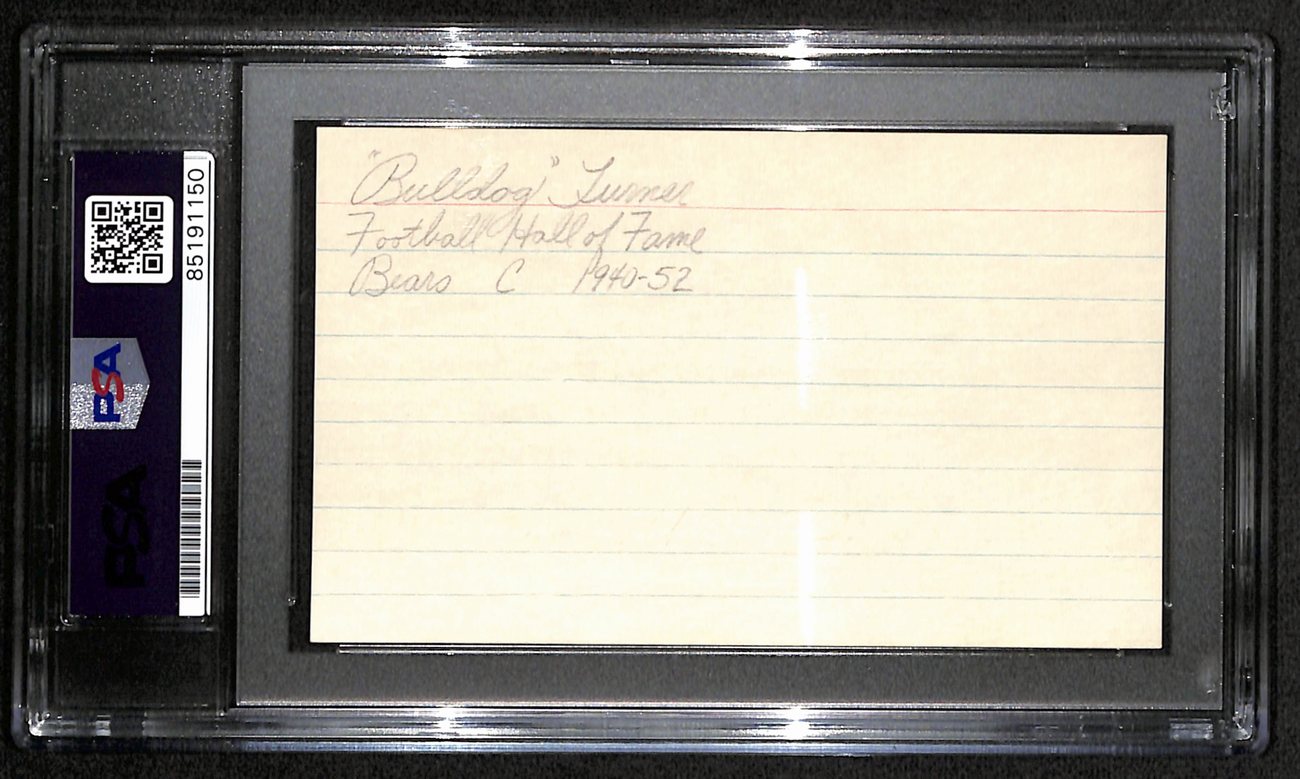 "Bulldog" Turner
Football Hall of Fame
Bears C 1940-52
85191150
PSA
PSA